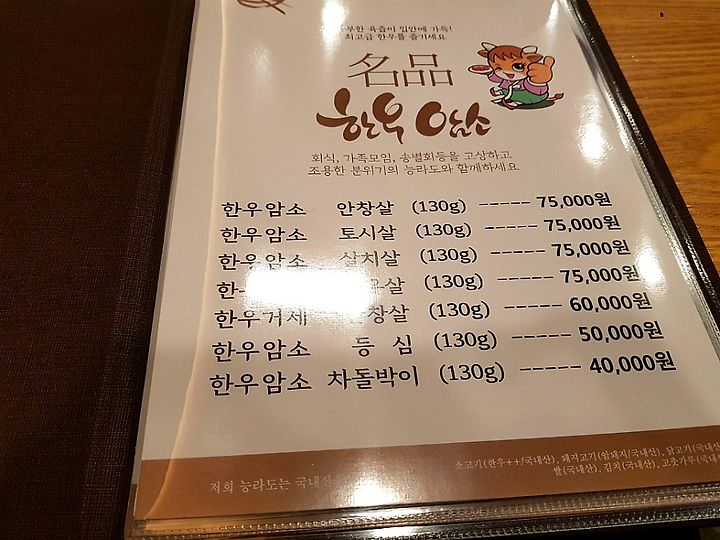 육즙이 입안에 가득!
최고급 한우를 즐기세요
名品
한우 암소
회식, 가족모임, 송별회등을 고상하고
조용한 분위기의 능라도와 함께하세요
한우암소 안창살 (130g) ----- 75,000원
한우암소 토시살 (130g) ----- 75,000원
한우암소 살치살 (130g) ----- 75,000원
(130g) ----- 75,000원
한우거세 안창살 (130g) ----- 60,000원
한우암소 등 심 (130g) ----- 50,000원
한우암소 차돌박이 (130g) ----- 40,000원
소고기(한우++/국내산), 돼지고기(암돼지/국내산), 닭고기(국내산
저희 능라도는 국내산
쌀(국내산), 김치(국내산), 고춧가루(국내